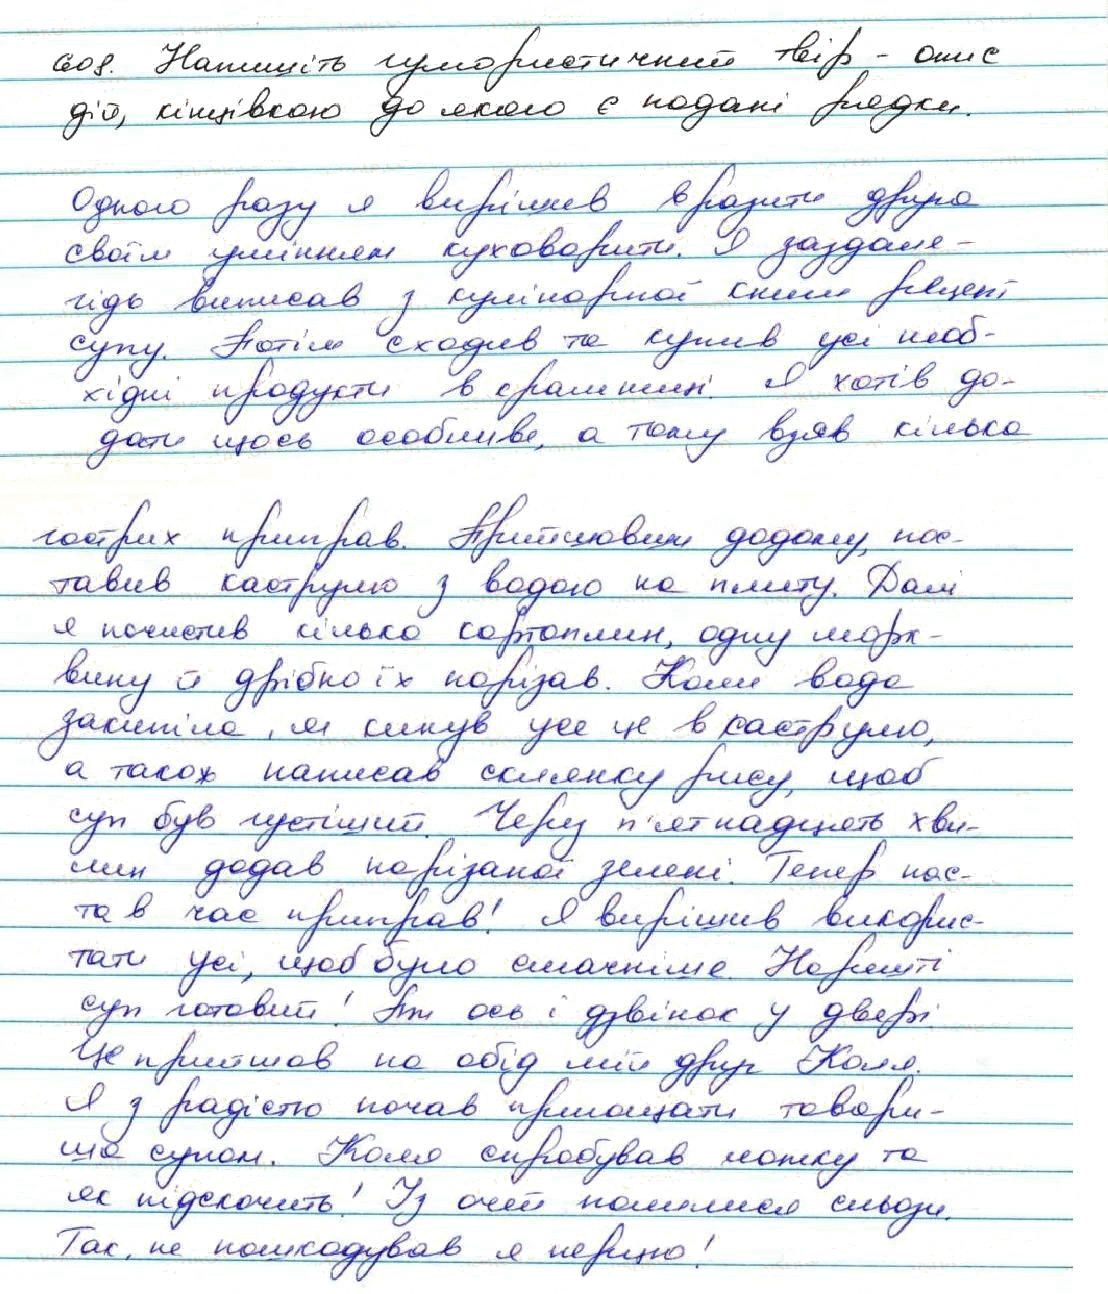 608. Напишіть гумористичний твір - опис
дій, кінцівкою до якого є подані рядки.
Одного разу я вирішив вразити друга
своїм умінням куховарити. Я заздале-
гідь виписав з кулінарної книги рецепт
супу. Потім сходив та купив усі необ-
хідні продукти в крамниці. Я хотів до-
дати щось особливе, а тому взяв кілька
гострих приправ. Прийшовши додому, пос-
тавив каструлю з водою на плиту. Далі
я почистив кілька картоплин, одну морк-
вину й дрібно їх порізав. Коли вода
закипіла, я кинув усе це в каструлю,
а також насипав склянку рису, щоб
суп був густіший. Через п'ятнадцять хви-
лин додав порізаної зелені. Тепер нас-
тав час приправ! Я вирішив викорис-
тати усі, щоб було смачніше. Нарешті
суп готовий! Ат ось і дзвінок у двері.
Це прийшов на обід мій друг Коля.
Я з радістю почав пригощати товари-
ша супом. Коля спробував ложку та
як підскочить! Із очей полилися сльози.
Так, не пошкодував я перцю!